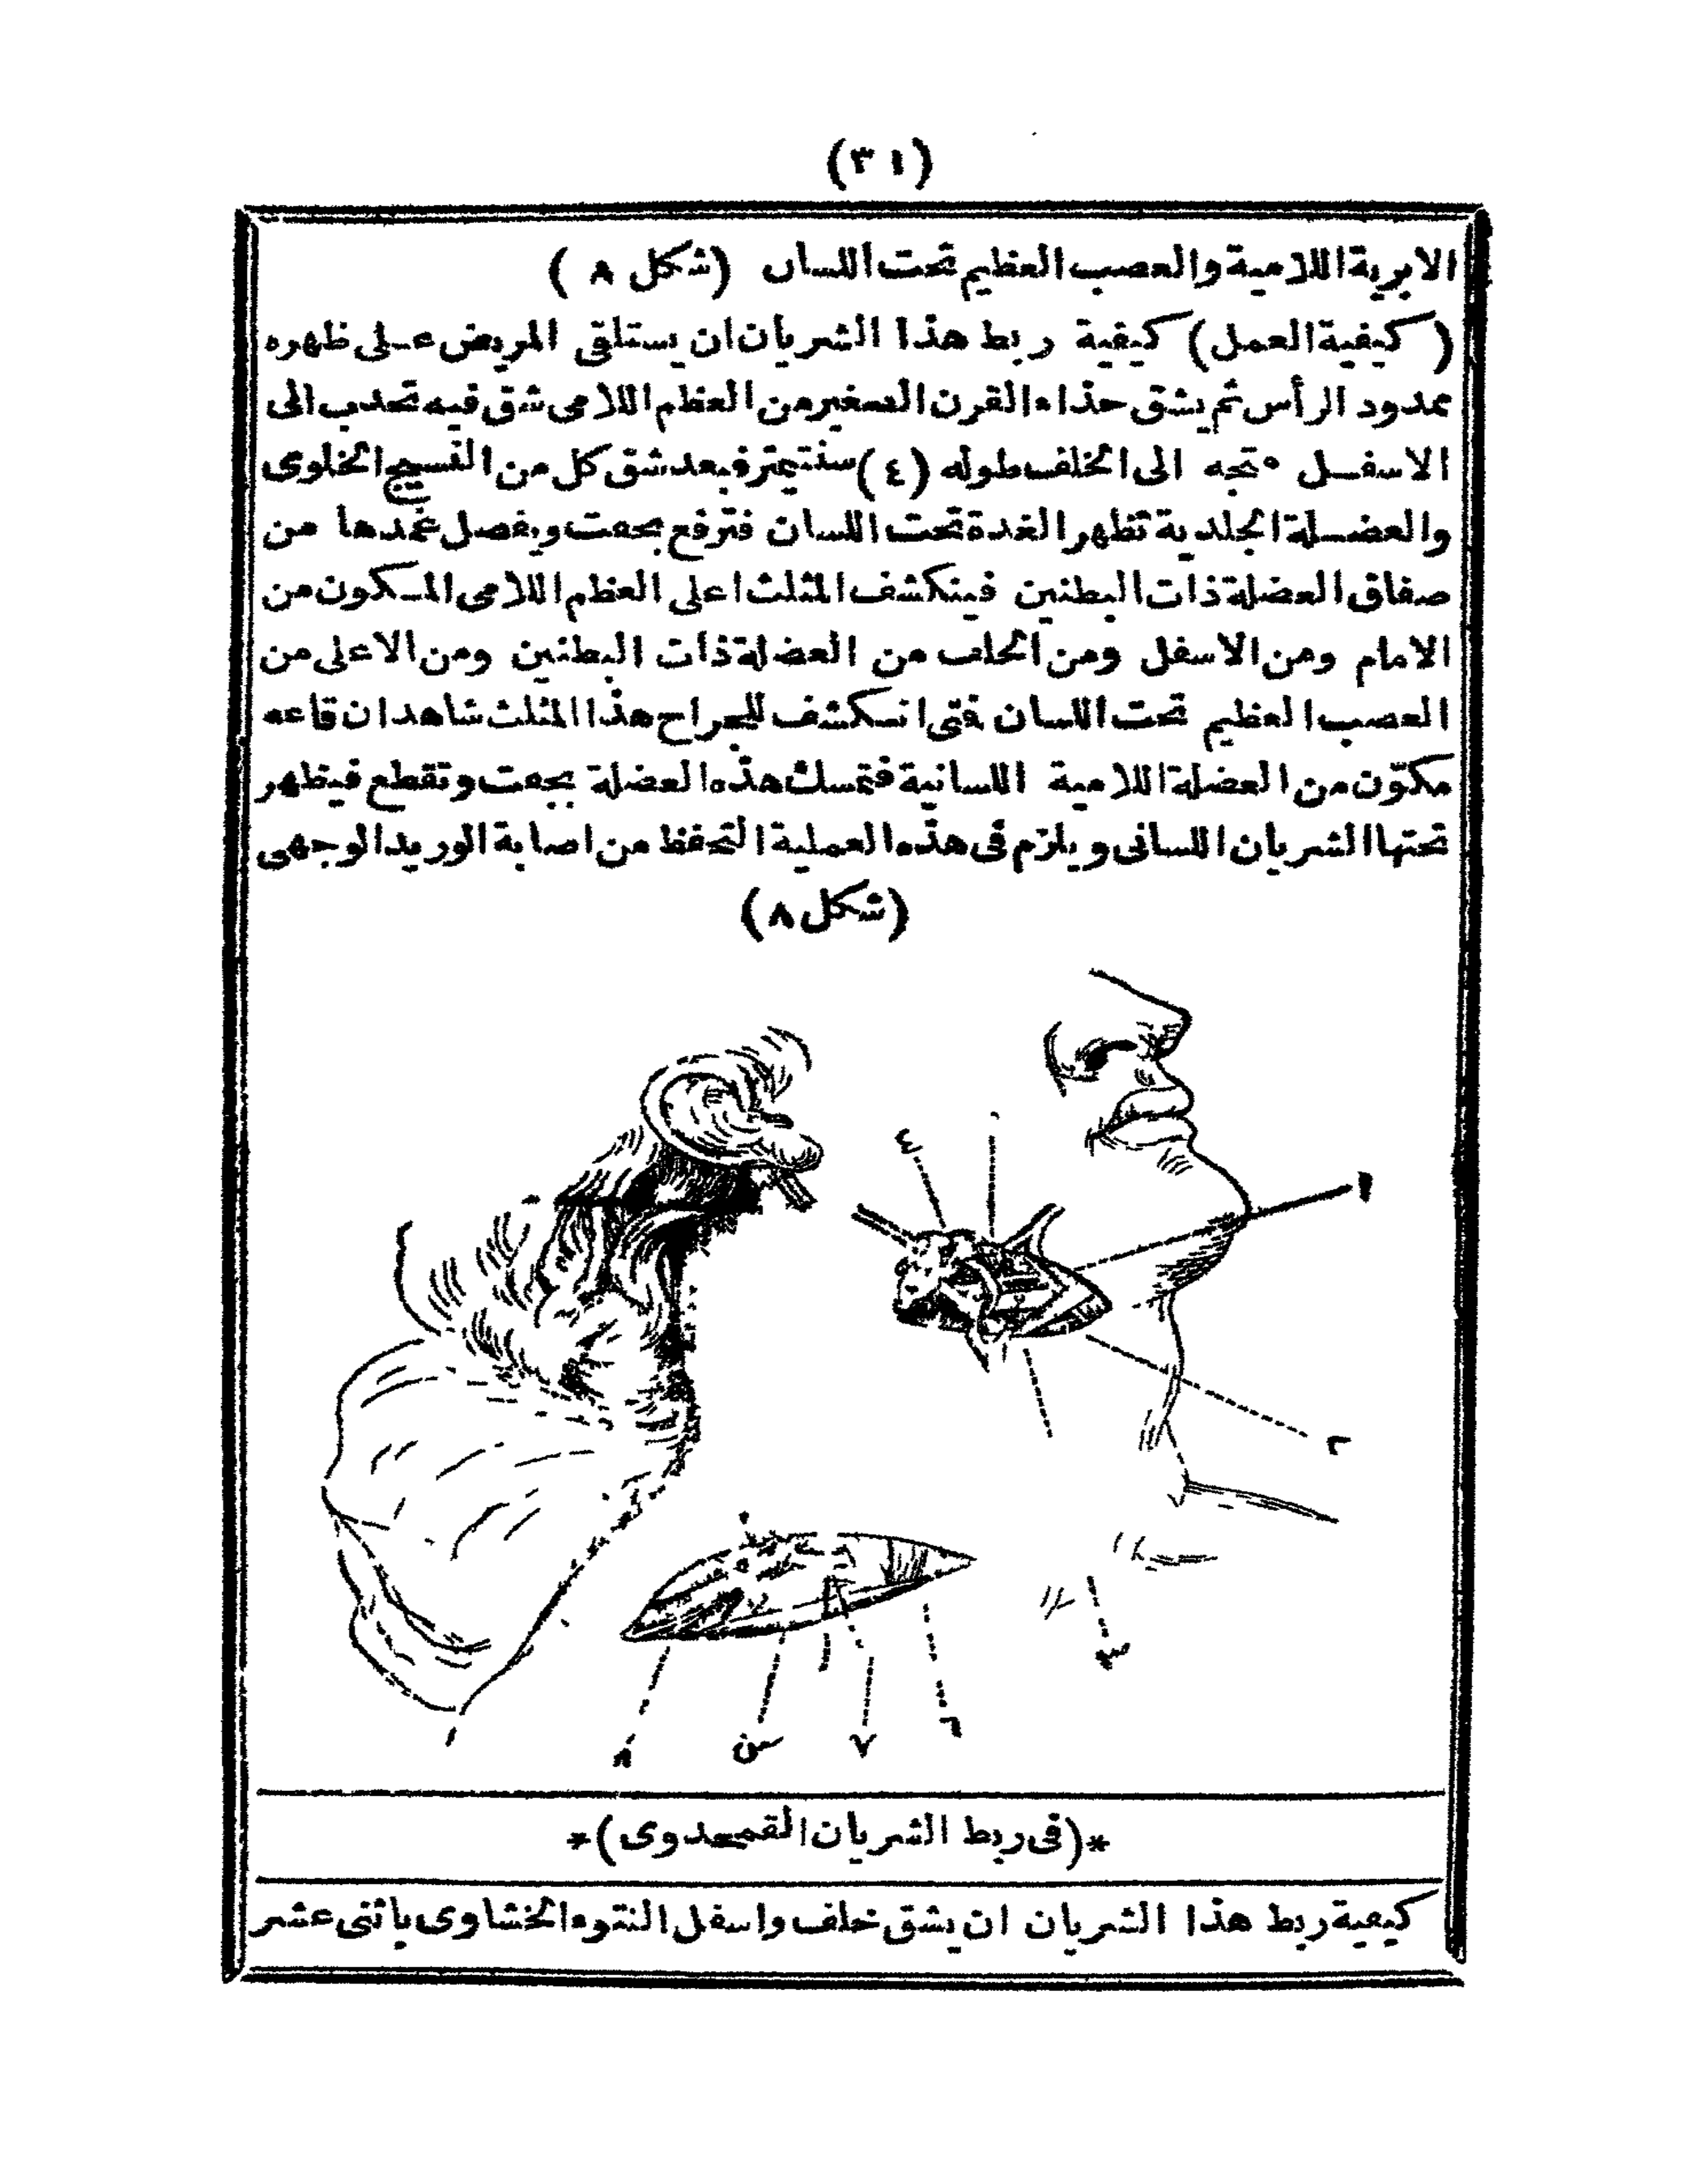 (٣١)
الابرية اللامية والعصب العظيم تحت اللسان (شكل ٨)
(كيفية العمل) كيفية ربط هذا الشريان ان يستلقى المريض على ظهره
ممدود الرأس ثم يشق حذاء القرن الصغير من العظم اللامى شق فيه تحدب الى
الاسفل متجه الى الخلف طوله (٤) سنتيمتر فبعد شق كل من النسيج الخلوى
والعضلة الجلدية تظهر الغدة تحت اللسان فترفع بجفت ويفصل غمدها من
صفاق العضلة ذات البطنين فينكشف المثلث اعلى العظم اللامى المكون من
الامام ومن الاسفل ومن الخلف من العضلة ذات البطنين ومن الاعلى من
العصب العظيم تحت اللسان فتى انكشف للجراح هذا المثلث شاهد ان قاعه
مكوّن من العضلة اللامية اللسانية فتمسك هذه العضلة بجفت وتقطع فيظهر
تحتها الشريان اللسانى ويلزم فى هذه العملية التحفظ من اصابة الوريد الوجهى
(شكل ٨)
٤
٢
٣
٨ س ٧ ٦
*(فى ربط الشريان القمحدوى)*
كيفية ربط هذا الشريان ان يشق خلف واسفل النتوء الخشاوى باثنى عشر